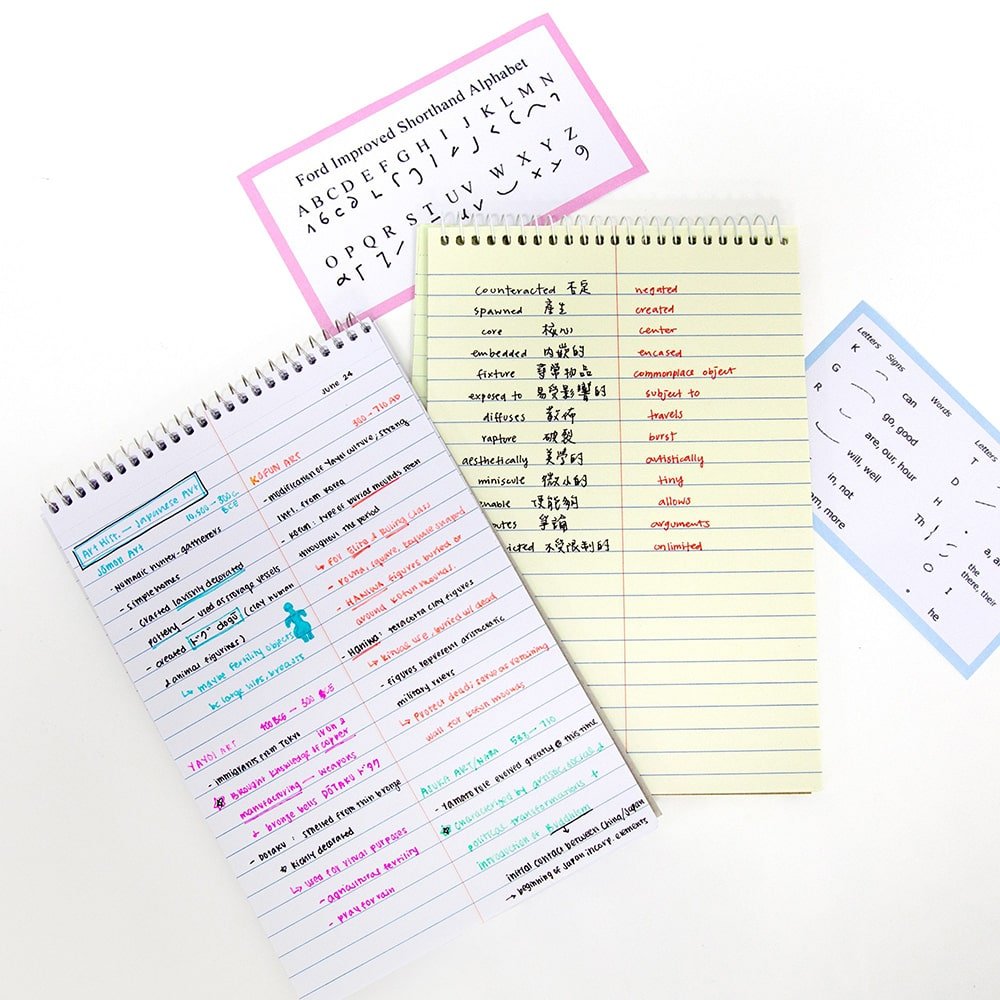 Ford Improved Shorthand Alphabet
A B C D E F G H I J K L M N
O P Q R S T U V W X Y Z
counteracted 否定 negated
spawned 產生 created
core 核心 center
embedded 內嵌的 encased
fixture 尋常物品 commonplace object
exposed to 易受影響的 subject to
diffuses 散佈 travels
rapture 破裂 burst
aesthetically 美學的 artistically
miniscule 微小的 tiny
使能夠 allows
爭論 arguments
不受限制的 unlimited
Letters Signs Words
K can
G go, good
R are, our, hour
will, well
in, not
more
Letters
T
D
H
Th
the
there, their
O
I
he
June 24
Art Hist. — Japanese Art
10,500 → 300 BCE
Jōmon Art
- nomadic hunter-gatherers
- simple homes
- crafted lavishly decorated
pottery — used as storage vessels
- created ドグウ dogū (clay human
& animal figurines)
↳ maybe fertility objects
bc large hips, breasts
YAYOI ART 400 BCE — 300 CE
- immigrants from Tokyo
Brought knowledge of iron & copper
manufacturing — weapons
+ bronze bells DŌTAKU
- DOTAKU : smelted from thin bronze
richly decorated
↳ used for ritual purposes
- agricultural fertility
- pray for rain
KOFUN ART 300 - 710 AD
- modification of Yayoi culture, strong
inf. from Korea
- Kofun : type of burial mounds seen
throughout this period
↳ For Elite & Ruling Class
- round, square, keyhole shaped
- HANIWA figures buried or
around kofun mounds.
- Haniwa: teracotta clay figures
buried w/ dead
- figures represent aristocratic
military rulers
↳ Protect dead; serve as retaining
wall for kofun mounds
ASUKA ART/NARA 552 → 710
- Yamato rule evolved greatly @ this time
characterized by artistic, social &
political transformations +
introduction of Buddhism
initial contact between China/Japan
→ beginning of Japan incorp. elements